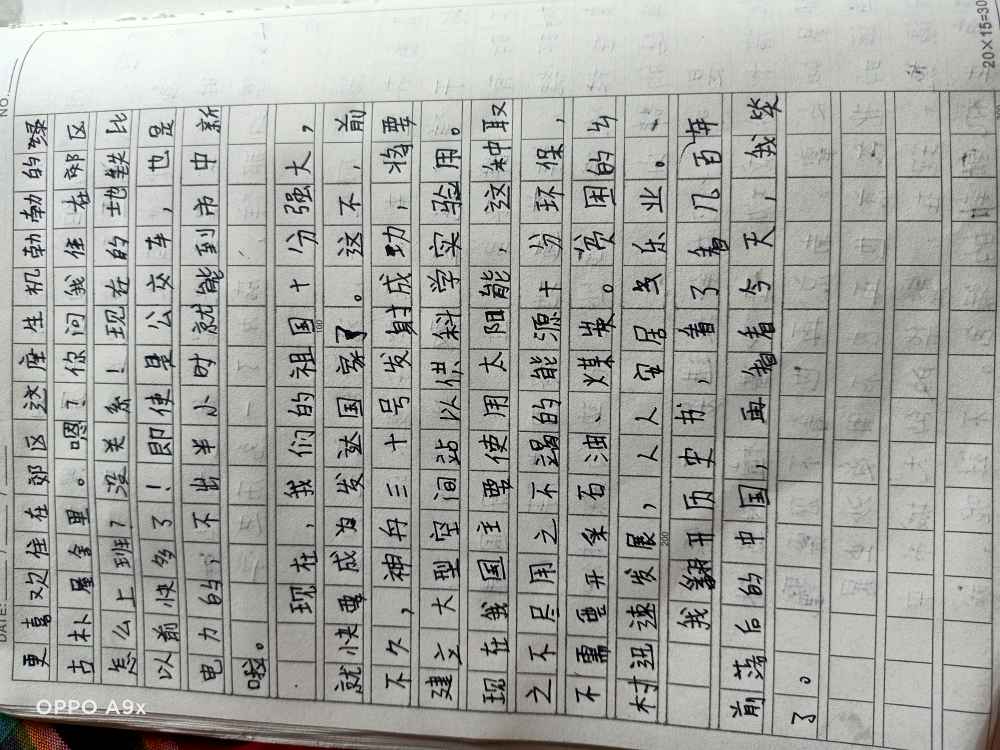 更喜欢住在郊区这座生机勃勃的绿
古朴屋舍里。嗯?你问我住在郊区
怎么上班?没关系!现在的地铁比
以前快多了!即使是公交车,也是
电力的,不出半小时就能到市中新
哦。
现在,我们的祖国十分强大,
就快要成为发达国家了。这不,前
不久,神舟三十号发射成功,将要
建立大型空间站以供科学实验用。
现在我国主要使用太阳能,这种取
之不尽用之不竭的能源十分环保,
不需要开采石油、煤炭。贫困的乡
村迅速发展,人人安居乐业。
我翻开历史书,看了看几百年
前落后的中国,再看看今天,我笑
了。
100
200
NO.
DATE: / /
20×15=30
OPPO A9x